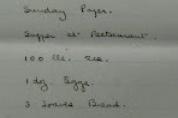 Sunday Paper.
Supper at Restaurant.
100 lbs. Ice.
1 dz. Eggs.
3 Loaves Bread.